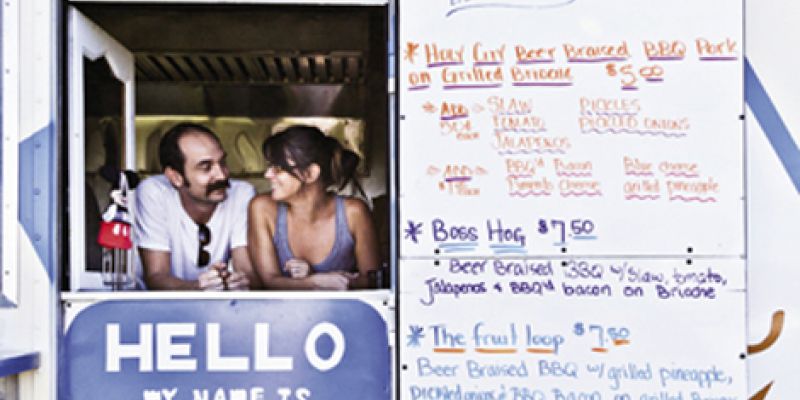 * Holy City Beer Braised BBQ Pork
on Grilled Brioche $5.00
ADD SLAW PICKLES
50¢ TOMATO PICKLED ONIONS
each JALAPENOS
ADD BBQ'd Bacon Blue cheese
Pimento cheese grilled pineapple
* Boss Hog $7.50
Beer Braised BBQ w/Slaw, tomato,
Jalapenos & BBQ'd bacon on Brioche
* The fruit loop $7.50
Beer Braised BBQ w/grilled pineapple,
pickled onions & BBQ Bacon on grilled
HELLO
MY NAME IS